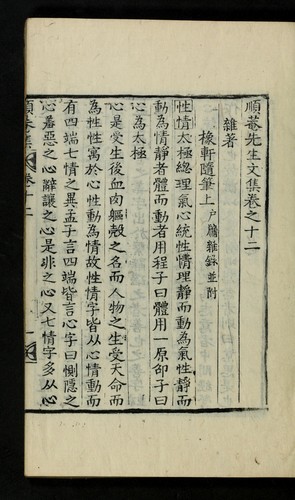 順菴先生文集卷之十二
雜著
橡軒隨筆上 户牖雜錄並附
性情太極總理氣心統性情理靜而動為氣性靜而
動為情靜者體而動者用程子曰體用一原邵子曰
心為太極
心是受生後血肉軀殼之名而人物之生受天命而
為性性寓於心性動為情故性情字皆从心情動而
有四端七情之異孟子言四端皆言心字曰惻隱之
心羞惡之心辭讓之心是非之心又七情字多从心
順菴集 卷十二 一